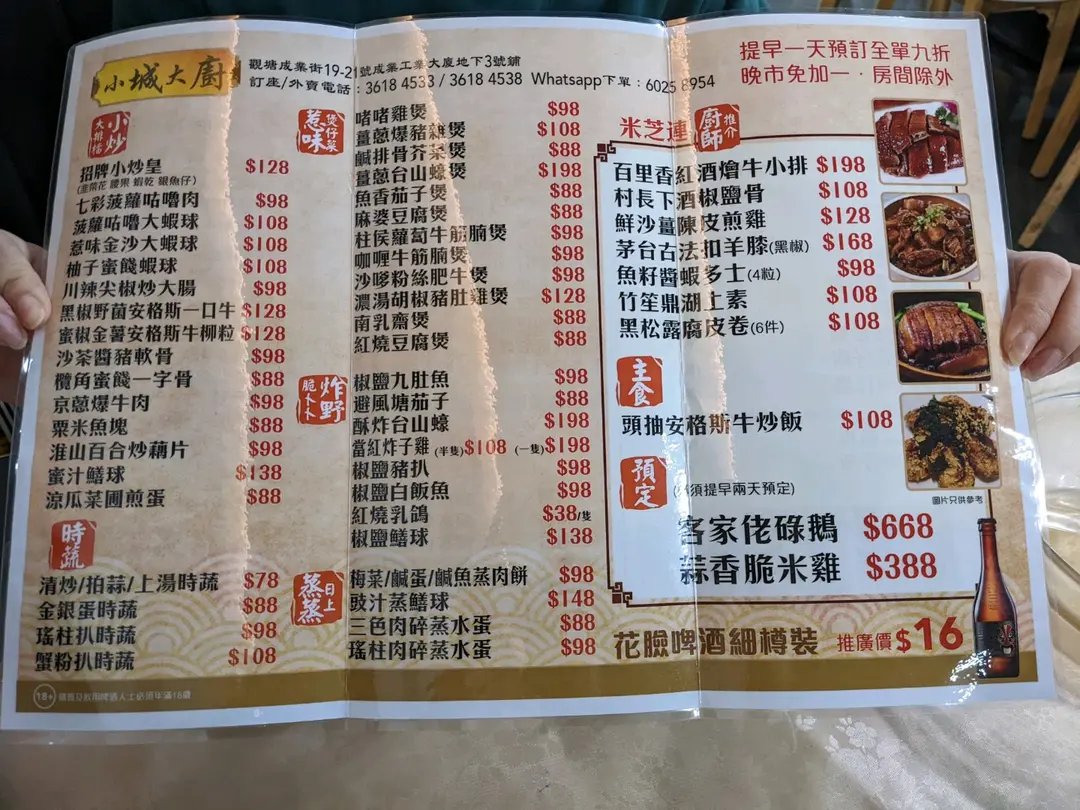 小城大廚
觀塘成業街19-21號成業工業大廈地下3號舖
訂座/外賣電話：3618 4533 / 3618 4538 Whatsapp下單：6025 8954
提早一天預訂全單九折
晚市免加一·房間除外
大排檔小炒
招牌小炒皇 $128
(韭菜花 腰果 蝦乾 銀魚仔)
七彩菠蘿咕嚕肉 $98
菠蘿咕嚕大蝦球 $108
惹味金沙大蝦球 $108
柚子蜜餞蝦球 $108
川辣尖椒炒大腸 $98
黑椒野菌安格斯一口牛 $128
蜜椒金薯安格斯牛柳粒 $128
沙茶醬豬軟骨 $98
欖角蜜餞一字骨 $88
京蔥爆牛肉 $98
粟米魚塊 $88
淮山百合炒藕片 $98
蜜汁鱔球 $138
涼瓜菜圃煎蛋 $88
時蔬
清炒/拍蒜/上湯時蔬 $78
金銀蛋時蔬 $88
瑤柱扒時蔬 $98
蟹粉扒時蔬 $108
惹味煲仔菜
啫啫雞煲 $98
薑蔥爆豬雜煲 $108
鹹排骨芥菜煲 $88
薑蔥台山蠔煲 $198
魚香茄子煲 $88
麻婆豆腐煲 $88
柱侯蘿蔔牛筋腩煲 $98
咖喱牛筋腩煲 $98
沙嗲粉絲肥牛煲 $98
濃湯胡椒豬肚雞煲 $128
南乳齋煲 $88
紅燒豆腐煲 $88
脆卜卜炸野
椒鹽九肚魚 $98
避風塘茄子 $88
酥炸台山蠔 $198
當紅炸子雞 (半隻)$108 (一隻)$198
椒鹽豬扒 $98
椒鹽白飯魚 $98
紅燒乳鴿 $38/隻
椒鹽鱔球 $138
蒸蒸日上
梅菜/鹹蛋/鹹魚蒸肉餅 $98
豉汁蒸鱔球 $148
三色肉碎蒸水蛋 $88
瑤柱肉碎蒸水蛋 $98
米芝連廚師推介
百里香紅酒燴牛小排 $198
村長下酒椒鹽骨 $108
鮮沙薑陳皮煎雞 $128
茅台古法扣羊膝(黑椒) $168
魚籽醬蝦多士(4粒) $98
竹笙鼎湖上素 $108
黑松露腐皮卷(6件) $108
主食
頭抽安格斯牛炒飯 $108
預定
(必須提早兩天預定)
客家佬碌鵝 $668
蒜香脆米雞 $388
圖片只供參考
花臉啤酒細樽裝 推廣價$16
18+ 購買及飲用啤酒人士必須年滿18歲